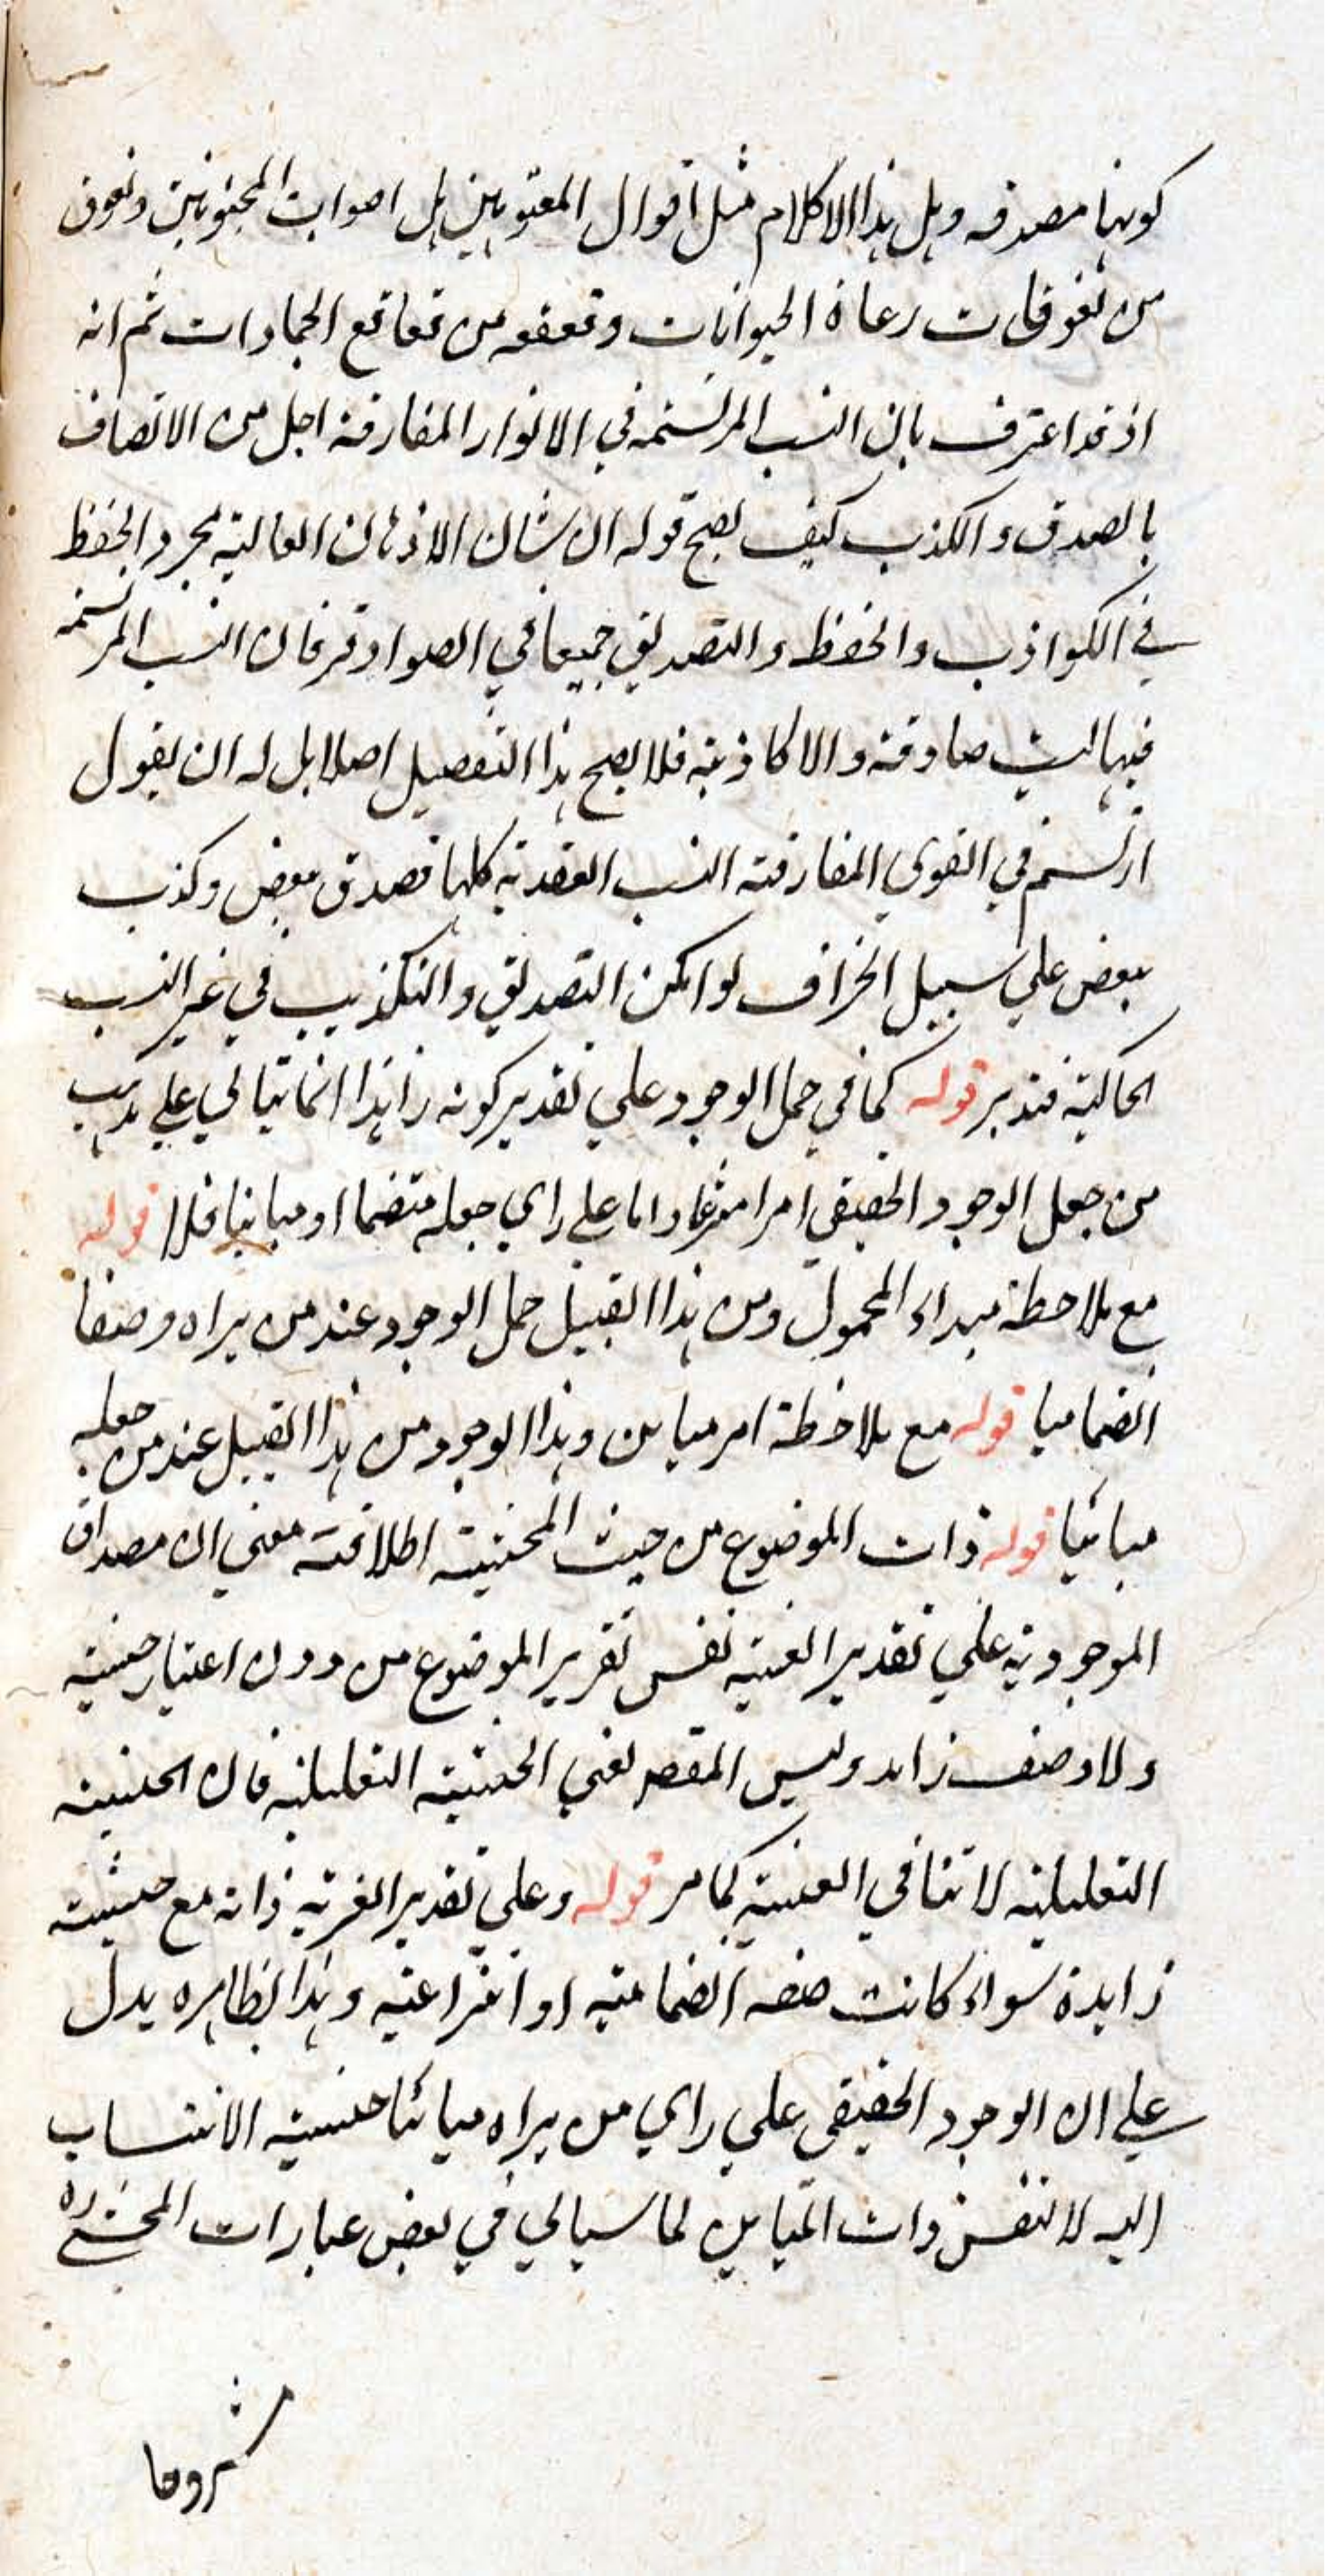 كونها مصدقه وهل هذا الا كلام مثل اقوال المعتوهين بل اصوات المجنونين ونعوق
من نغوقات رعاة الحيوانات وقعقعه من قعاقع الجمادات ثم انه
اذ قد اعترف بان النسب المرتسمه في الانوار المفارقة اجل من الاتصاف
بالصدق والكذب كيف يصح قوله ان شان الاذهان العالية مجرد الحفظ
في الكواذب والحفظ والتصديق جميعا في الصوادق فان النسب المرتسمه
فيها ليست صادقة والا كاذبة فلا يصح هذا التفصيل اصلا بل له ان يقول
ارتسم في القوي المفارقة النسب العقدية كلها فصدق بعض وكذب
ببعض علي سبيل الجزاف لو امكن التصديق والتكذيب في غير النسب
الحاكية فتدبر قوله كما في حمل الوجود علي تقدير كونه زائدا انما يتاتي علي مذهب
من جعل الوجود الحقيقي امرا منتزعا واما علي راي جعله منضما او مباينا فلا قوله
مع ملاحظة مبداء المحمول ومن هذا القبيل حمل الوجود عند من يراه وصفا
انضماميا قوله مع ملاحظة امر مباين وهذا الوجود من هذا القبيل عند من جعله
مباينا قوله ذات الموضوع من حيث الحيثية اطلاقية معني ان مصداق
الموجودية علي تقدير العينية نفس تقرير الموضوع من دون اعتبار حيثية
ولا وصف زايد وليس المقصر نفي الحيثية التعليلية فان الحيثية
التعليلية لا تنافي العينية كما مر قوله وعلي تقدير الغيرية ذاته مع حيثية
زايدة سواء كانت صفه انضمامية او انتزاعية وهذا بظاهره يدل
علي ان الوجود الحقيقي علي راي من يراه مباينا حيثية الانتساب
اليه لا لنفس ذات المباين لما سياتي في بعض عبارات المحشي ره